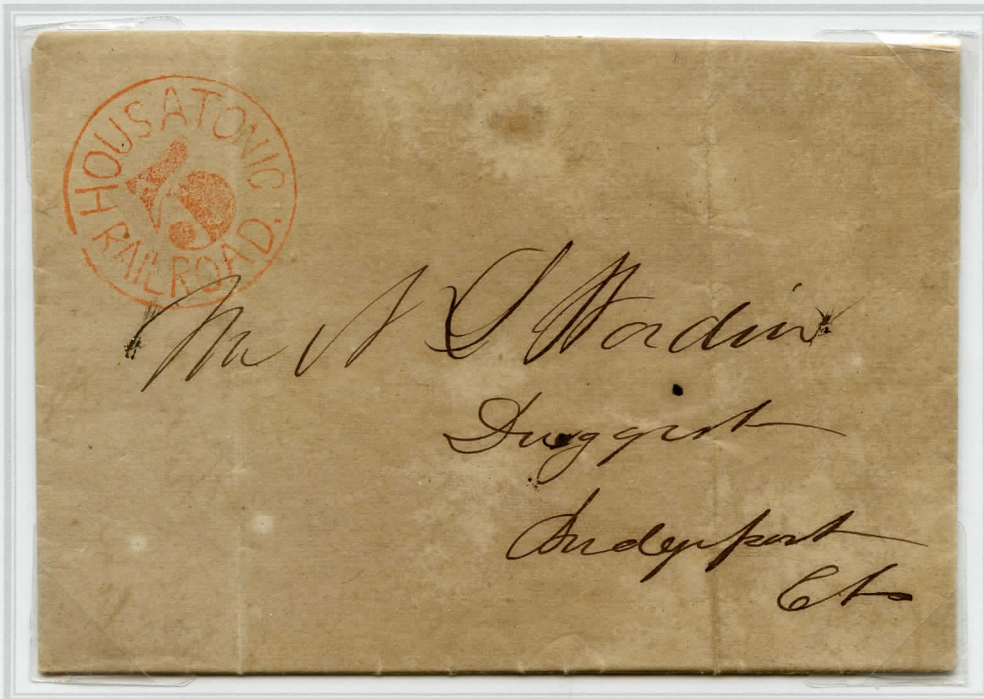 HOUSATONIC
5
RAILROAD.
Mr N S Wordin
Druggist
Bridgeport
Ct